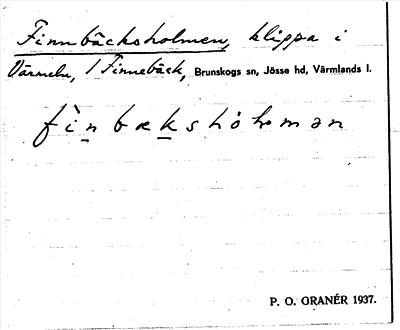 Finnbäcksholmen, klippa i
Värmeln, / Finnebäck, Brunskogs sn, Jösse hd, Värmlands l.
fìnbækshòlmən
P. O. GRANÉR 1937.